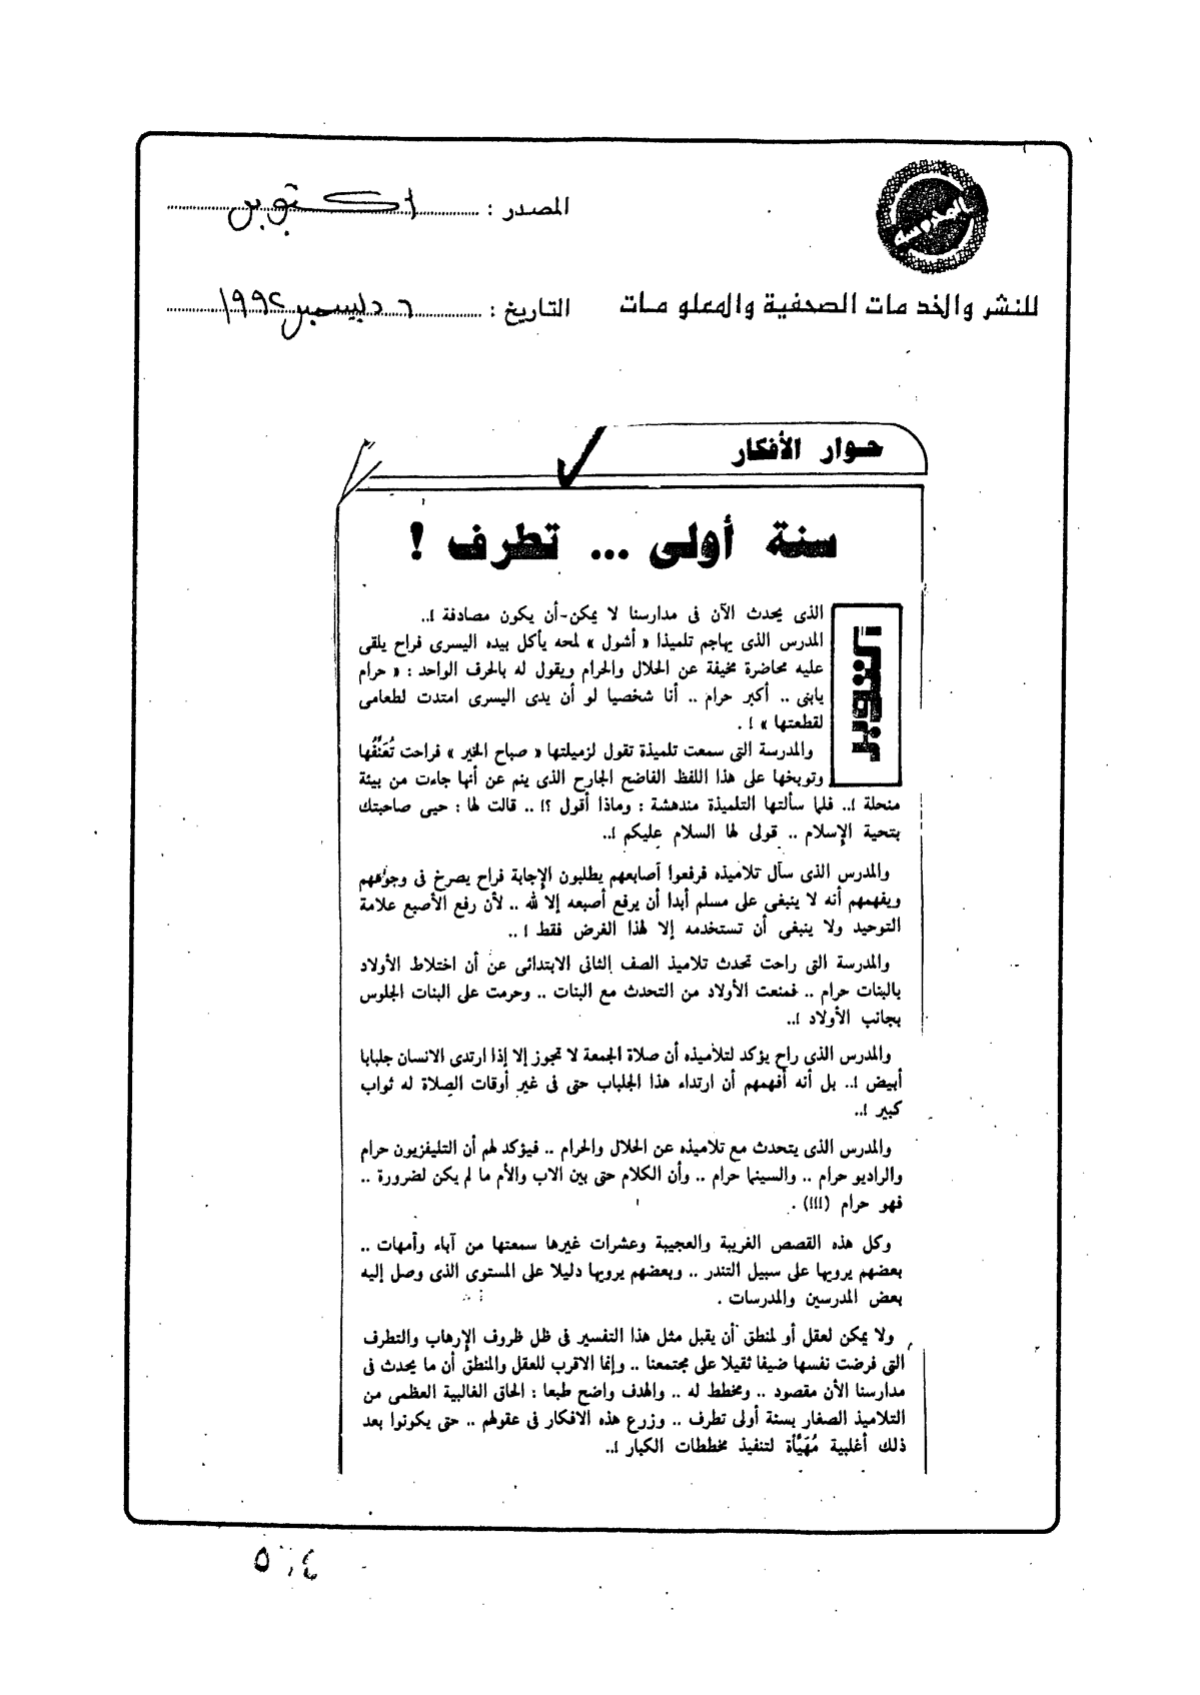 المصدر : أكتوبر
للنشر والخدمات الصحفية والمعلومات
التاريخ : ٦ ديسمبر ١٩٩٢
حوار الأفكار
سنة أولى ... تطرف !
أكتوبر
الذى يحدث الآن فى مدارسنا لا يمكن أن يكون مصادفة !..
المدرس الذى يهاجم تلميذا « أشول » لمحه يأكل بيده اليسرى فراح يلقى
عليه محاضرة مخيفة عن الحلال والحرام ويقول له بالحرف الواحد : « حرام
يابنى .. أكبر حرام .. أنا شخصيا لو أن يدى اليسرى امتدت لطعامى
لقطعتها » ! .
والمدرسة التى سمعت تلميذة تقول لزميلتها « صباح الخير » فراحت تُعَنِّفُها
وتوبخها على هذا اللفظ الفاضح الجارح الذى ينم عن أنها جاءت من بيئة
منحلة !.. فلما سألتها التلميذة مندهشة : وماذا أقول ؟! .. قالت لها : حيى صاحبتك
بتحية الإسلام .. قولى لها السلام عليكم !..
والمدرس الذى سأل تلاميذه فرفعوا أصابعهم يطلبون الإجابة فراح يصرخ فى وجوههم
ويفهمهم أنه لا ينبغى على مسلم أبدا أن يرفع أصبعه إلا لله .. لأن رفع الأصبع علامة
التوحيد ولا ينبغى أن تستخدمه إلا لهذا الغرض فقط ! ..
والمدرسة التى راحت تحدث تلاميذ الصف الثانى الابتدائى عن أن اختلاط الأولاد
بالبنات حرام .. فمنعت الأولاد من التحدث مع البنات .. وحرمت على البنات الجلوس
بجانب الأولاد !..
والمدرس الذى راح يؤكد لتلاميذه أن صلاة الجمعة لا تجوز إلا إذا ارتدى الانسان جلبابا
أبيض !.. بل أنه أفهمهم أن ارتداء هذا الجلباب حتى فى غير أوقات الصلاة له ثواب
كبير !..
والمدرس الذى يتحدث مع تلاميذه عن الحلال والحرام .. فيؤكد لهم أن التليفزيون حرام
والراديو حرام .. والسينما حرام .. وأن الكلام حتى بين الاب والأم ما لم يكن لضرورة ..
فهو حرام (!!!) .
وكل هذه القصص الغريبة والعجيبة وعشرات غيرها سمعتها من آباء وأمهات ..
بعضهم يرويها على سبيل التندر .. وبعضهم يرويها دليلا على المستوى الذى وصل إليه
بعض المدرسين والمدرسات .
ولا يمكن لعقل أو لمنطق أن يقبل مثل هذا التفسير فى ظل ظروف الإرهاب والتطرف
التى فرضت نفسها ضيفا ثقيلا على مجتمعنا .. وإنما الاقرب للعقل والمنطق أن ما يحدث فى
مدارسنا الأن مقصود .. ومخطط له .. والهدف واضح طبعا : الحاق الغالبية العظمى من
التلاميذ الصغار بسنة أولى تطرف .. وزرع هذه الافكار فى عقولهم .. حتى يكونوا بعد
ذلك أغلبية مُهَيَّأة لتنفيذ مخططات الكبار !..